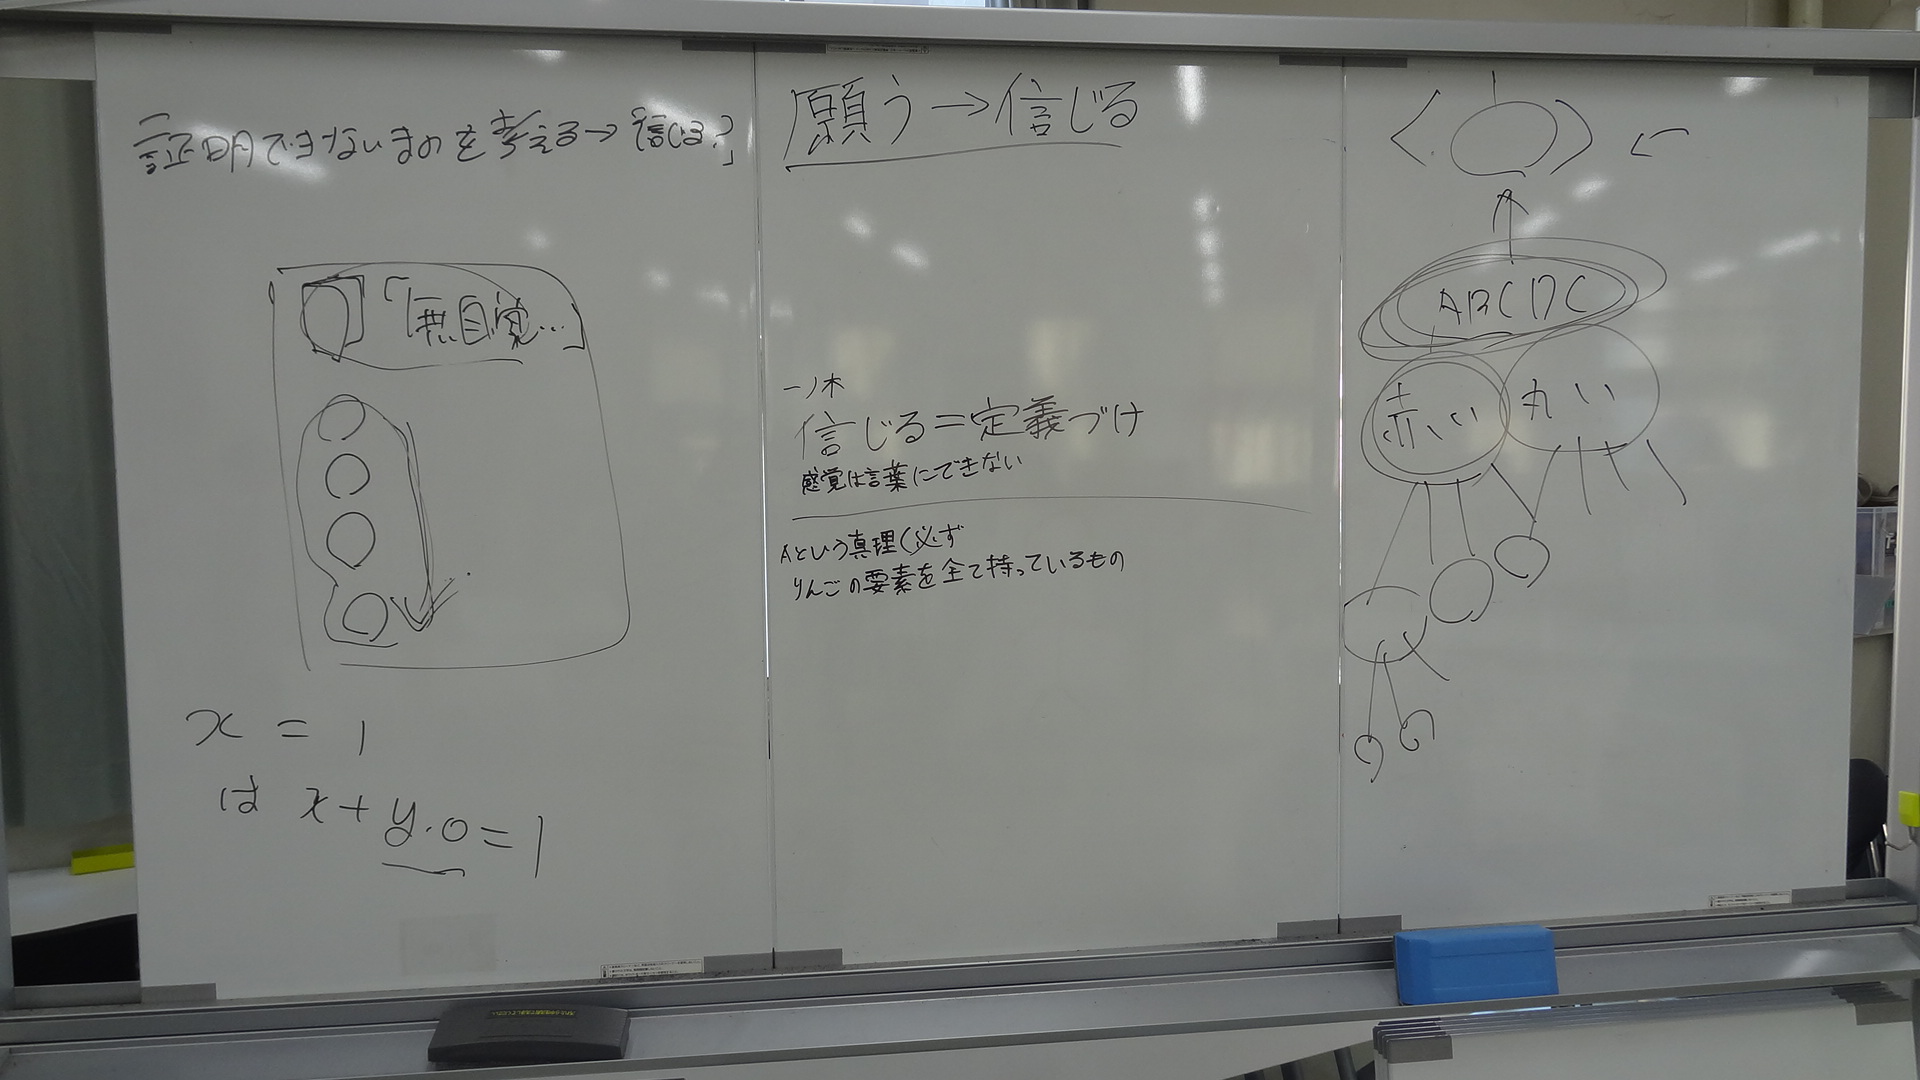 証明できないものを考える→「信じる?」
「無自覚…」
x = 1
は x+y・0=1
願う→信じる
一ノ木
信じる=定義づけ
感覚は言葉にできない
Aという真理(必ず
りんごの要素を全て持っているもの
ABCDC
赤い 丸い